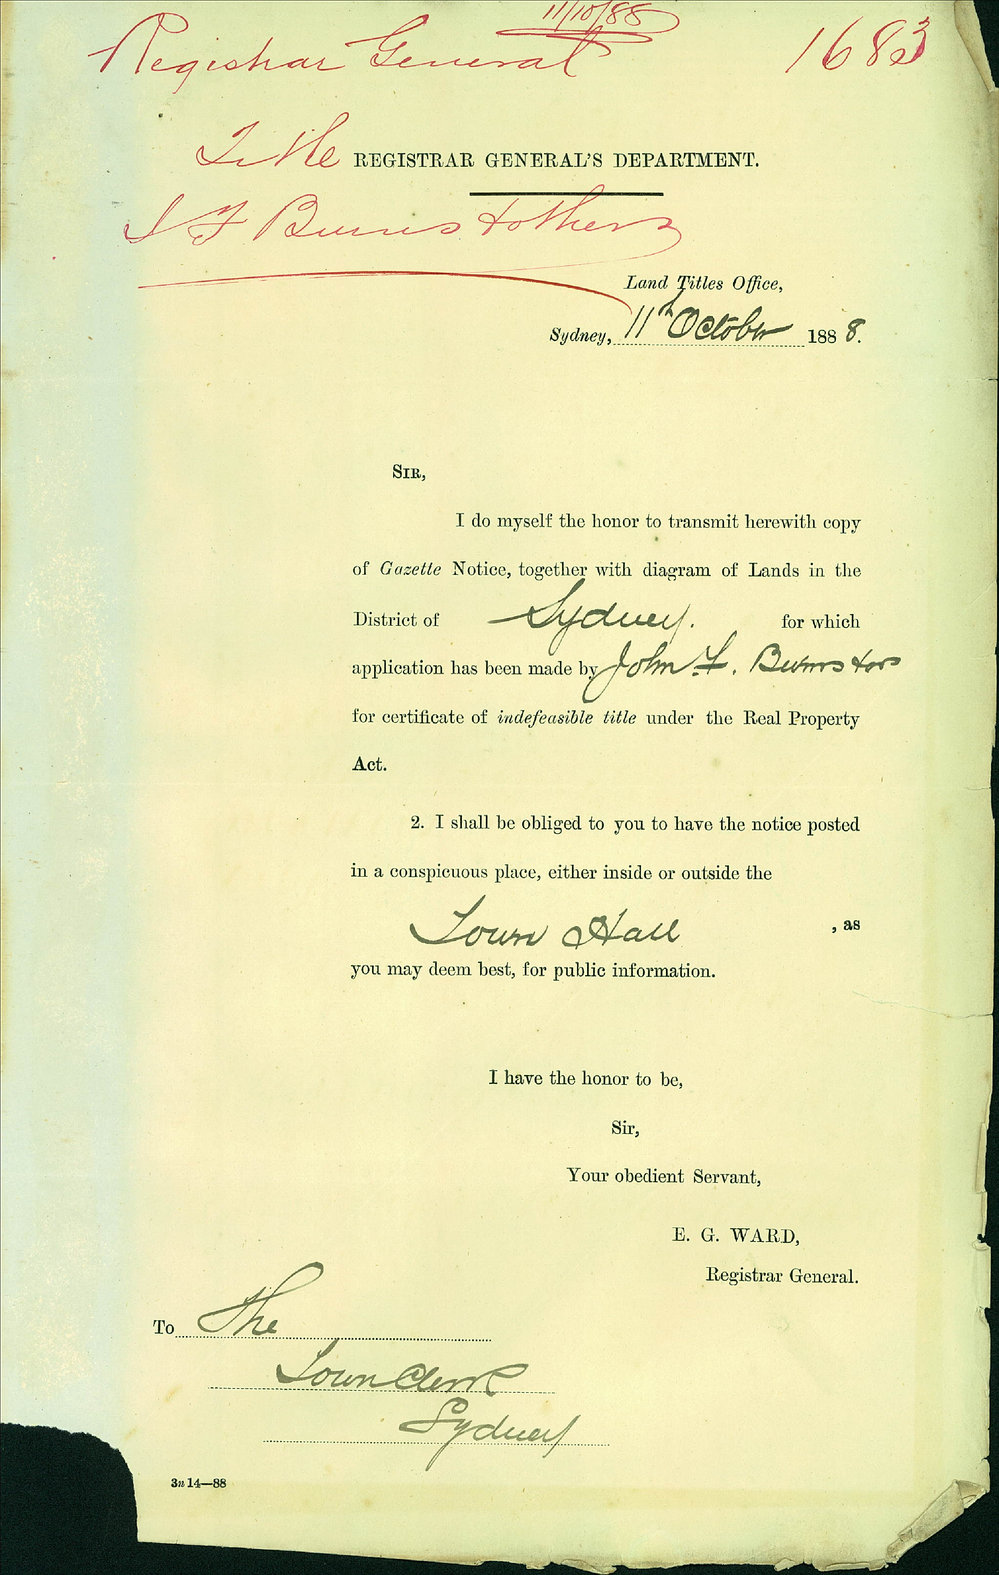 11/10/88
Registrar General 1683
Title REGISTRAR GENERAL'S DEPARTMENT.
J F Burns & others
Land Titles Office,
Sydney, 11th October 1888.
SIR,
I do myself the honor to transmit herewith copy
of Gazette Notice, together with diagram of Lands in the
District of Sydney. for which
application has been made by John F. Burns & ors
for certificate of indefeasible title under the Real Property
Act.
2. I shall be obliged to you to have the notice posted
in a conspicuous place, either inside or outside the
Town Hall , as
you may deem best, for public information.
I have the honor to be,
Sir,
Your obedient Servant,
E. G. WARD,
Registrar General.
To The
Town Clerk
Sydney
3n 14—88